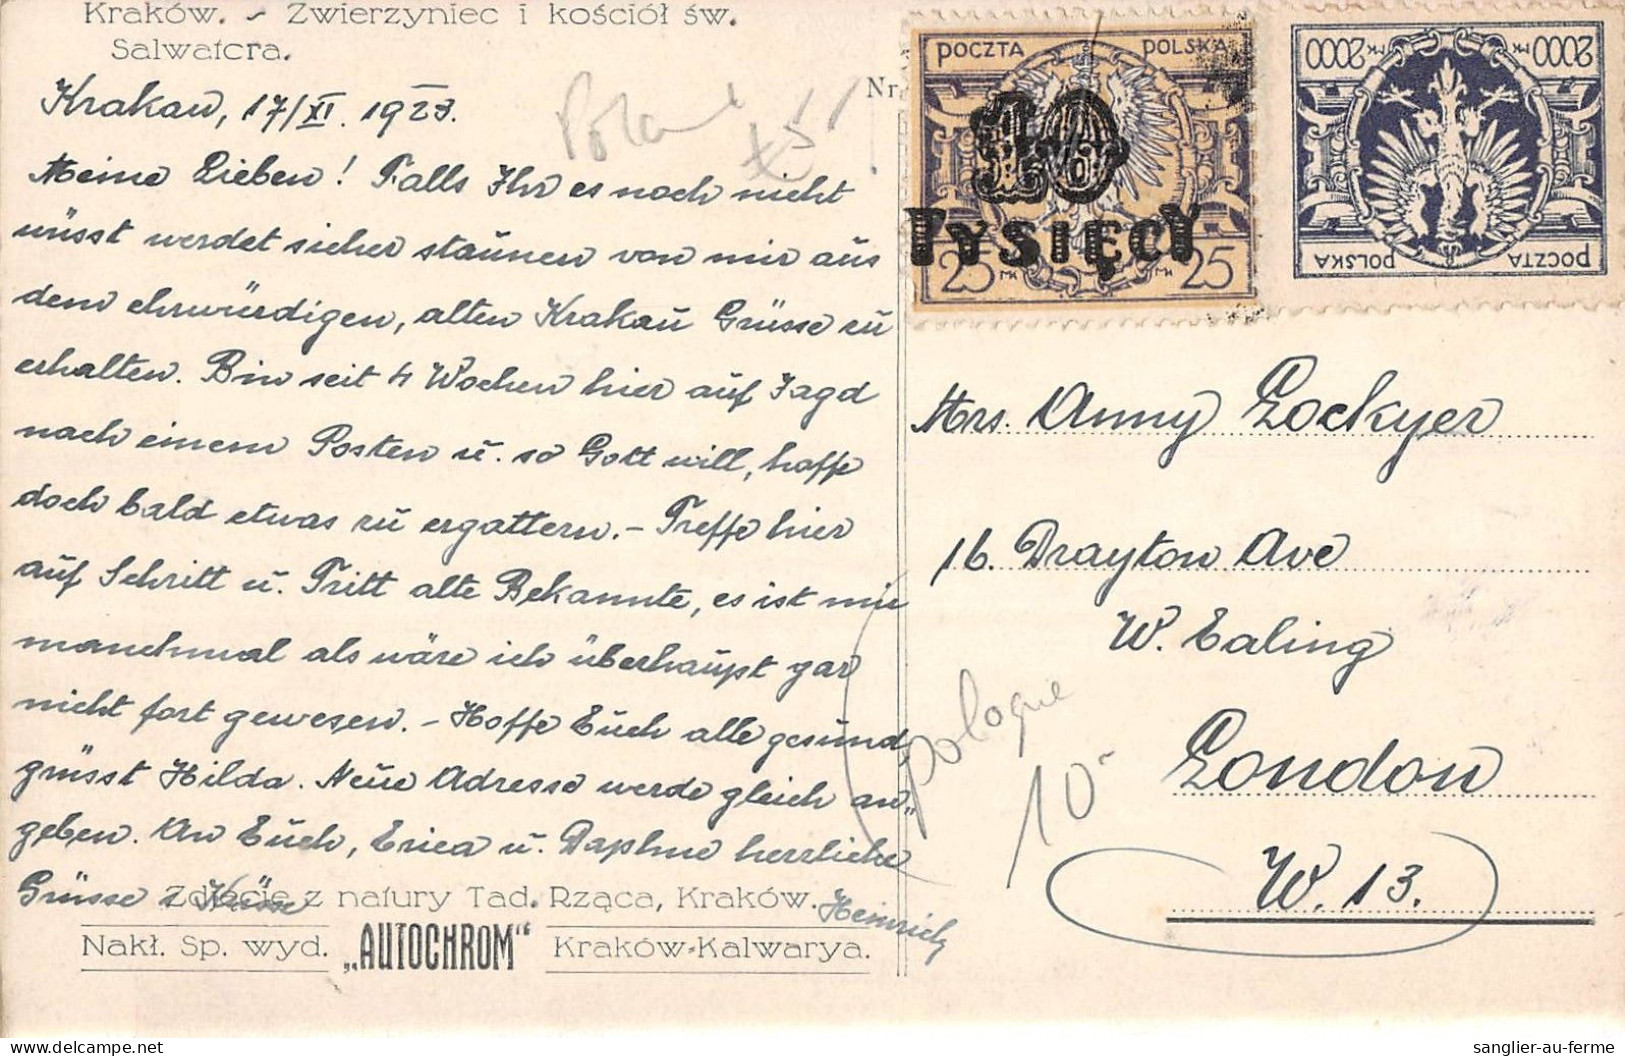 Kraków. - Zwierzyniec i kościół św.
Salwatora.
Krakau, 17/XI. 1923.
Meine Lieben! Falls Ihr es noch nicht
wüsst werdet sicher staunen von mir aus
dem ehrwürdigen, alten Krakau Grüsse zu
erhalten. Bin seit 4 Wochen hier auf Jagd
nach einem Posten u. so Gott will, hoffe
doch bald etwas zu ergattern. - Treffe hier
auf Schritt u. Tritt alte Bekannte, es ist mir
manchmal als wäre ich überhaupt gar
nicht fort gewesen. - Hoffe Euch alle gesund,
grüsst Hilda. Neue Adresse werde gleich an-
geben. An Euch, Erica u. Daphne herrliche
Grüsse & Küsse
Heinrich
Zdjęcie z natury Tad. Rząca, Kraków.
Nakł. Sp. wyd. „AUTOCHROM" Kraków-Kalwarya.
Nr.
POCZTA POLSKA
10
TYSIĘCY
25 MK MK 25
2000 MK MK 2000
POCZTA POLSKA
Mrs. Anny Lockyer
16. Drayton Ave
W. Ealing
London
W. 13.
Pologne
10-
sanglier-au-ferme